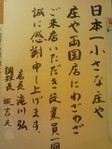 日本一小さな庄や
庄や両国店にわざわざ
ご来店いただき従業員一同
誠に感謝申し上げます。
店長 滝川弘
調理長